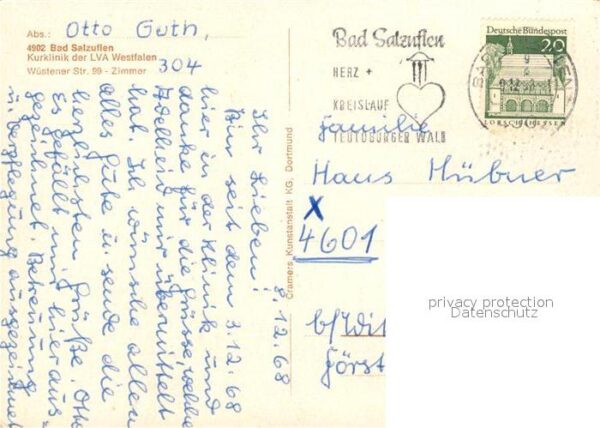 Abs.: Otto Guth,
4902 Bad Salzuflen
Kurklinik der LVA Westfalen
Wüstener Str. 99 - Zimmer 304
Bad Salzuflen
HERZ +
KREISLAUF
TEUTOBURGER WALD
Deutsche Bundespost
20
LORSCH/HESSEN
Familie
Hans Hübner
X
4601
Cramers Kunstanstalt KG, Dortmund
privacy protection
Datenschutz
8.12.68
Ihr Lieben!
Bin seit dem 3.12.68
hier in der Klinik und
danke für die Grüsse welche
mir übermittelt
hat. Ich wünsche allen
alles Gute u. sende die
herzlichsten Grüße. Otto
Es gefällt mir hier aus-
gezeichnet. Betreuung
u. Verpflegung ausgezeichnet